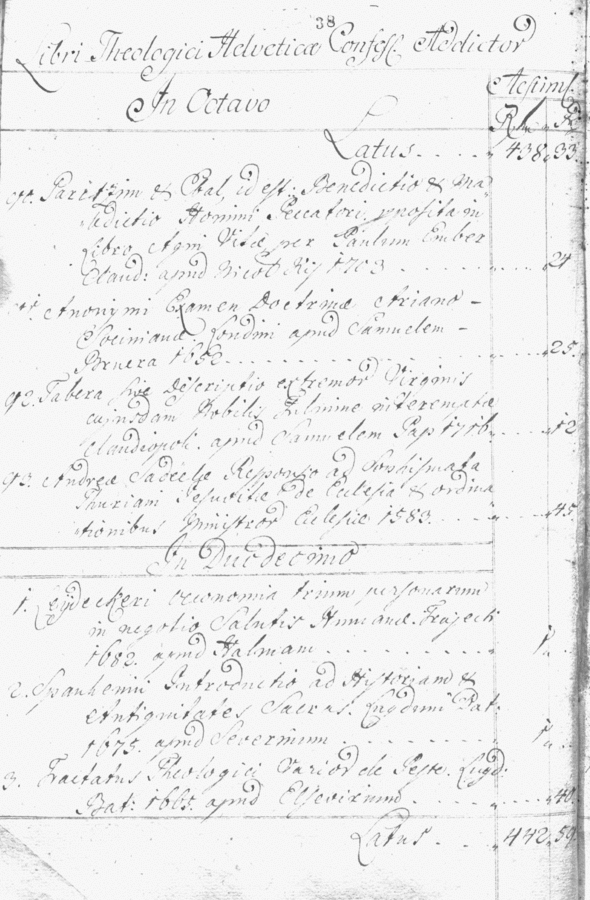 38
Libri Theologici Helveticæ Confess. Addictor
Aestims.
In Octavo
Rh. Xr.
Latus 438 33
90. Garizim & Ebal, id est. Benedictio & Ma-
ledictio Homini Peccatori proposita in
Libro Agni Vitæ per Paulum Ember
Claud: apud Nicol. Kis 1703 24
91. Anonymi Examen Doctrinæ Ariano-
Socinianæ Londini apud Samuelem
Bruera 1652 25
92. Tabera sive Descriptio extremor Virginis
cujusdam Nobilis Fulmine interemtæ
Claudiopoli apud Samuelem Pap 1716 12
93. Andreæ Sadeelæ Responsio ad Sophismata
Thuriani Jesuitæ de Eclesia & ordina
tionibus Ministror Eclesiæ 1583. 45
In Duodecimo
1. Leydeckeri oeconomia trium personarum
in negotio Salutis Humanæ. Trajecti
1682. apud Halmam 1
2. Spanhemii Introductio ad Historiam &
Antiquitates Sacras. Lugduni Bat.
1675. apud Severinum 1
3. Tractatus Theologici Varior de Peste. Lugd:
Bat: 1655. apud Elsevirium 40
Latus 442 59